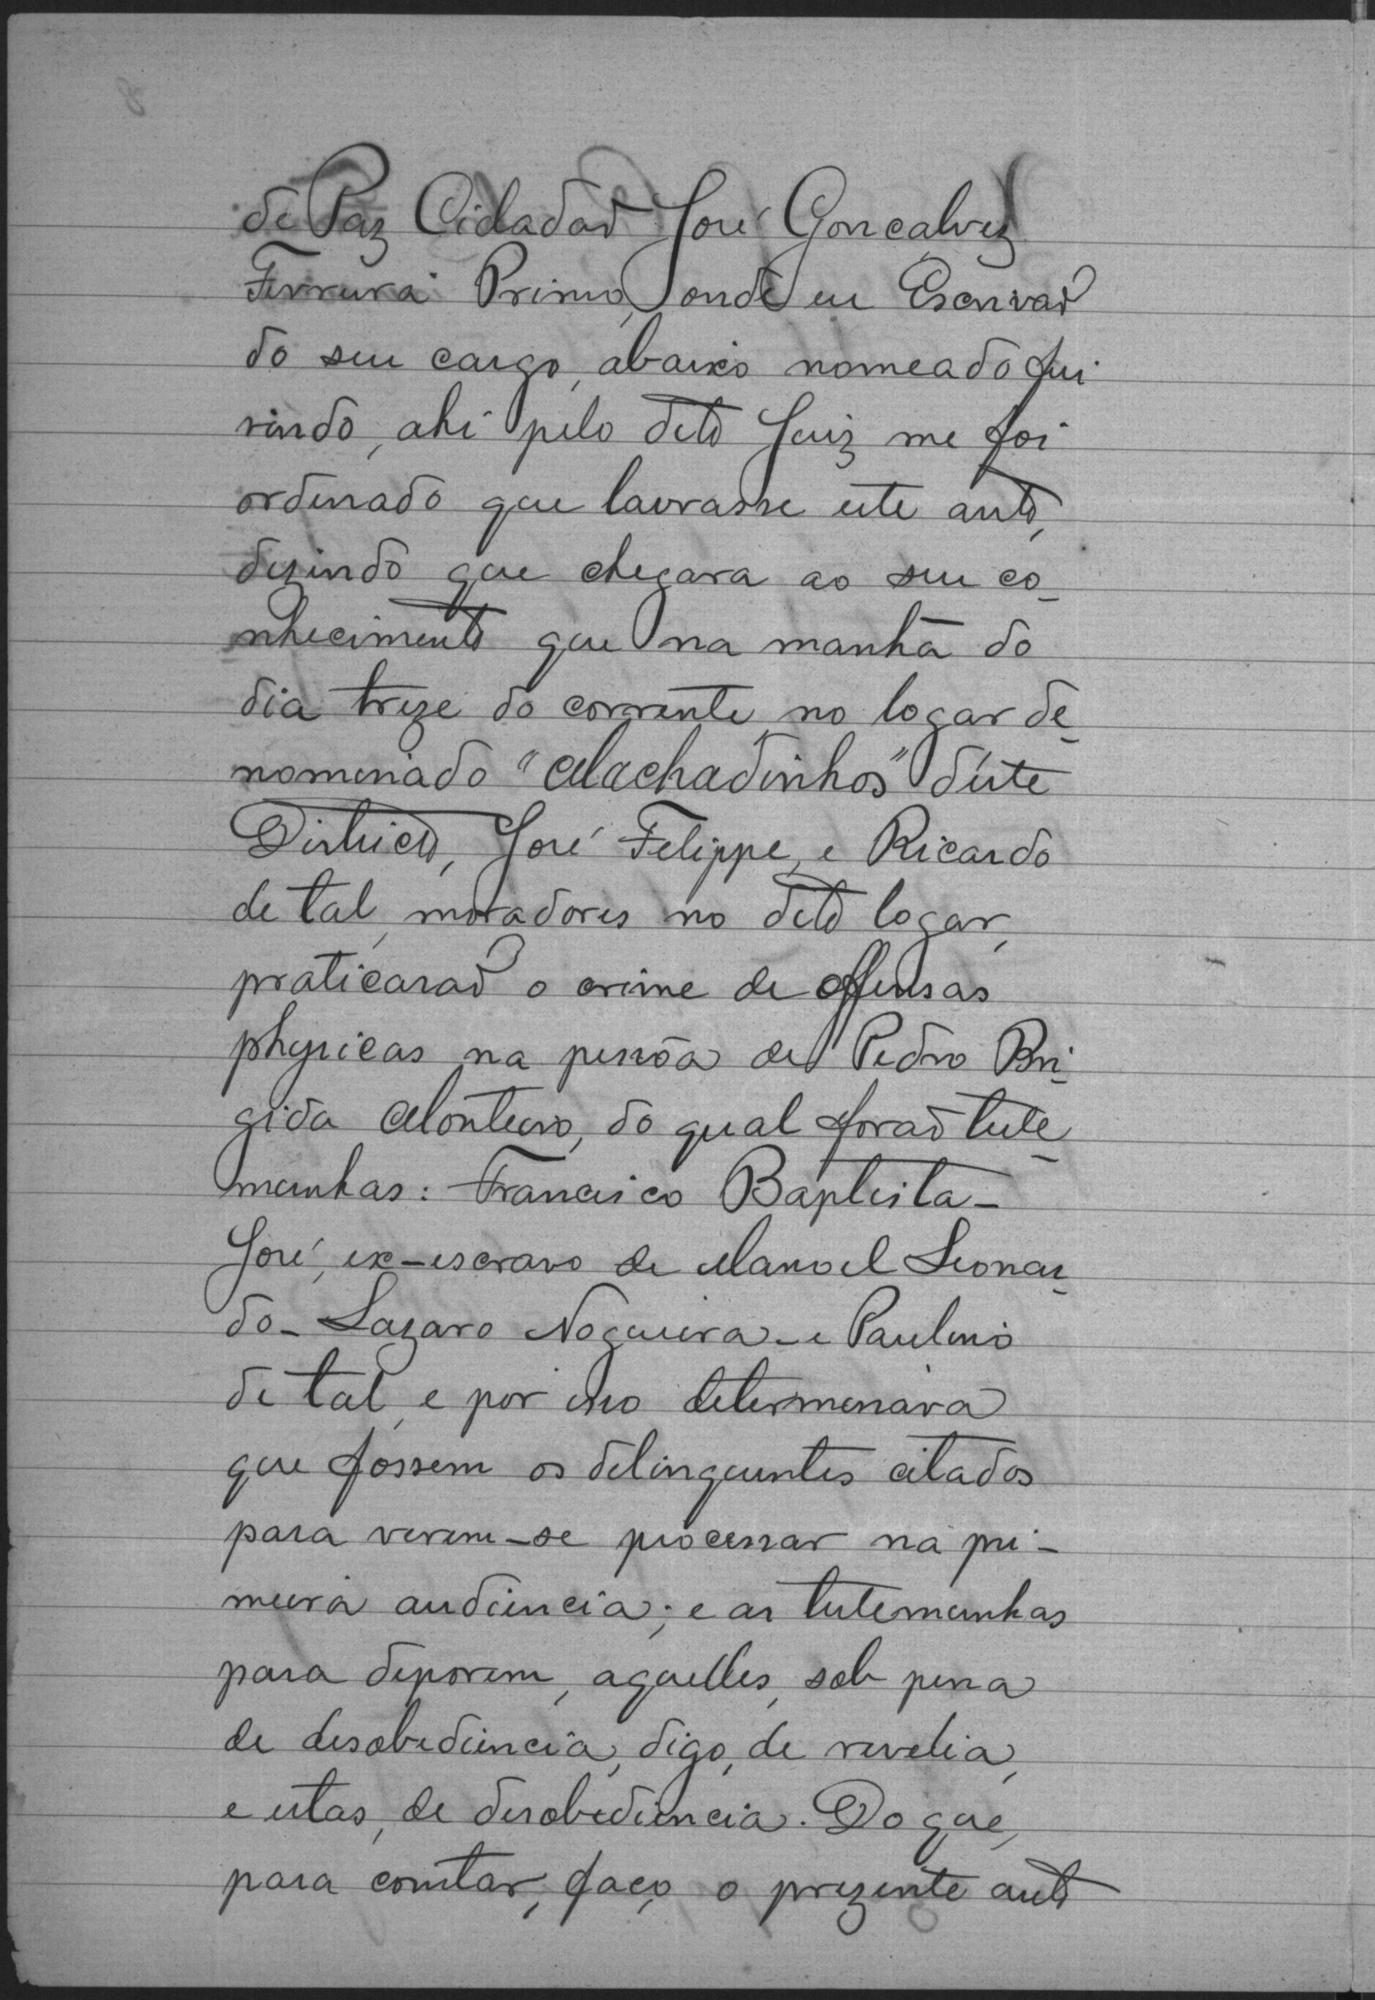 de Paz Cidadaõ José Gonçalves
Ferreira Primo, onde eu Escrivaõ
do seu cargo, abaixo nomeado fui
vindo, ahi pelo dito Juiz me foi
ordenado que lavrasse este auto,
dizendo que chegara ao seu co-
nhecimento que na manhã do
dia treze do corrente, no logar de-
nominado "Machadinhos" d'este
Districto, José Felippe, e Ricardo
de tal, moradores no dito logar,
praticaraõ o crime de offensas
physicas na pessôa de Pedro Bri-
gida Monteiro, do qual foraõ teste-
munhas: Francisco Baptista-
José, ex-escravo de Manoel Leonar-
do- Lazaro Nogueira- e Paulino
de tal, e por isso determinára
que fossem os delinquentes citados
para verem-se processar na pri-
meira audiencia; e as testemunhas
para deporem, aquelles, sob pena
de desobediencia, digo, de revelia,
e estas, de desobediencia. Do que,
para constar, faço o prezente auto